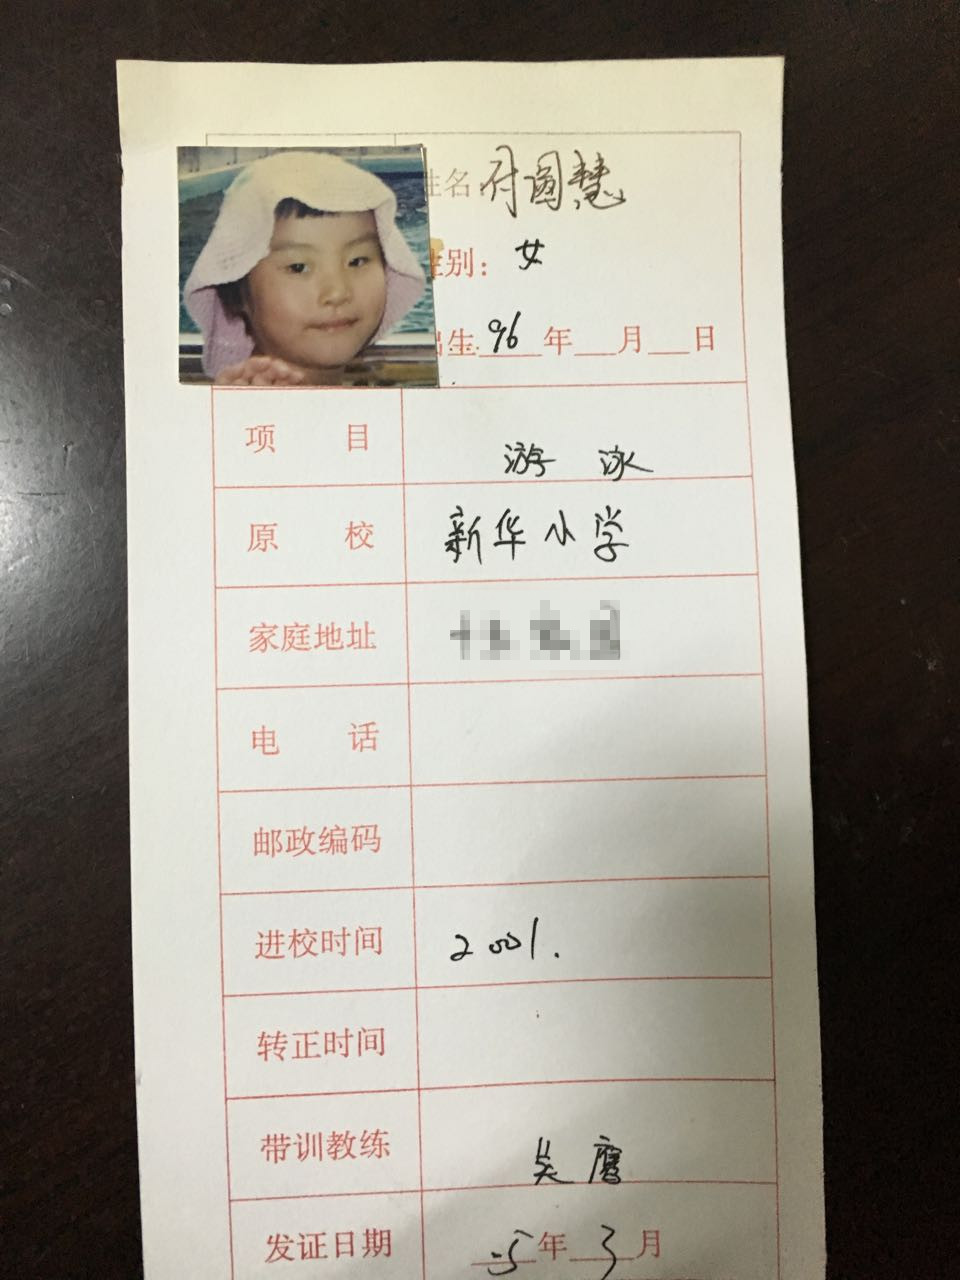 姓名：付圆慧
性别：女
出生 96 年 月 日
项 目 游 泳
原 校 新华小学
家庭地址
电 话
邮政编码
进校时间 2001.
转正时间
带训教练 吴
发证日期 05年3月